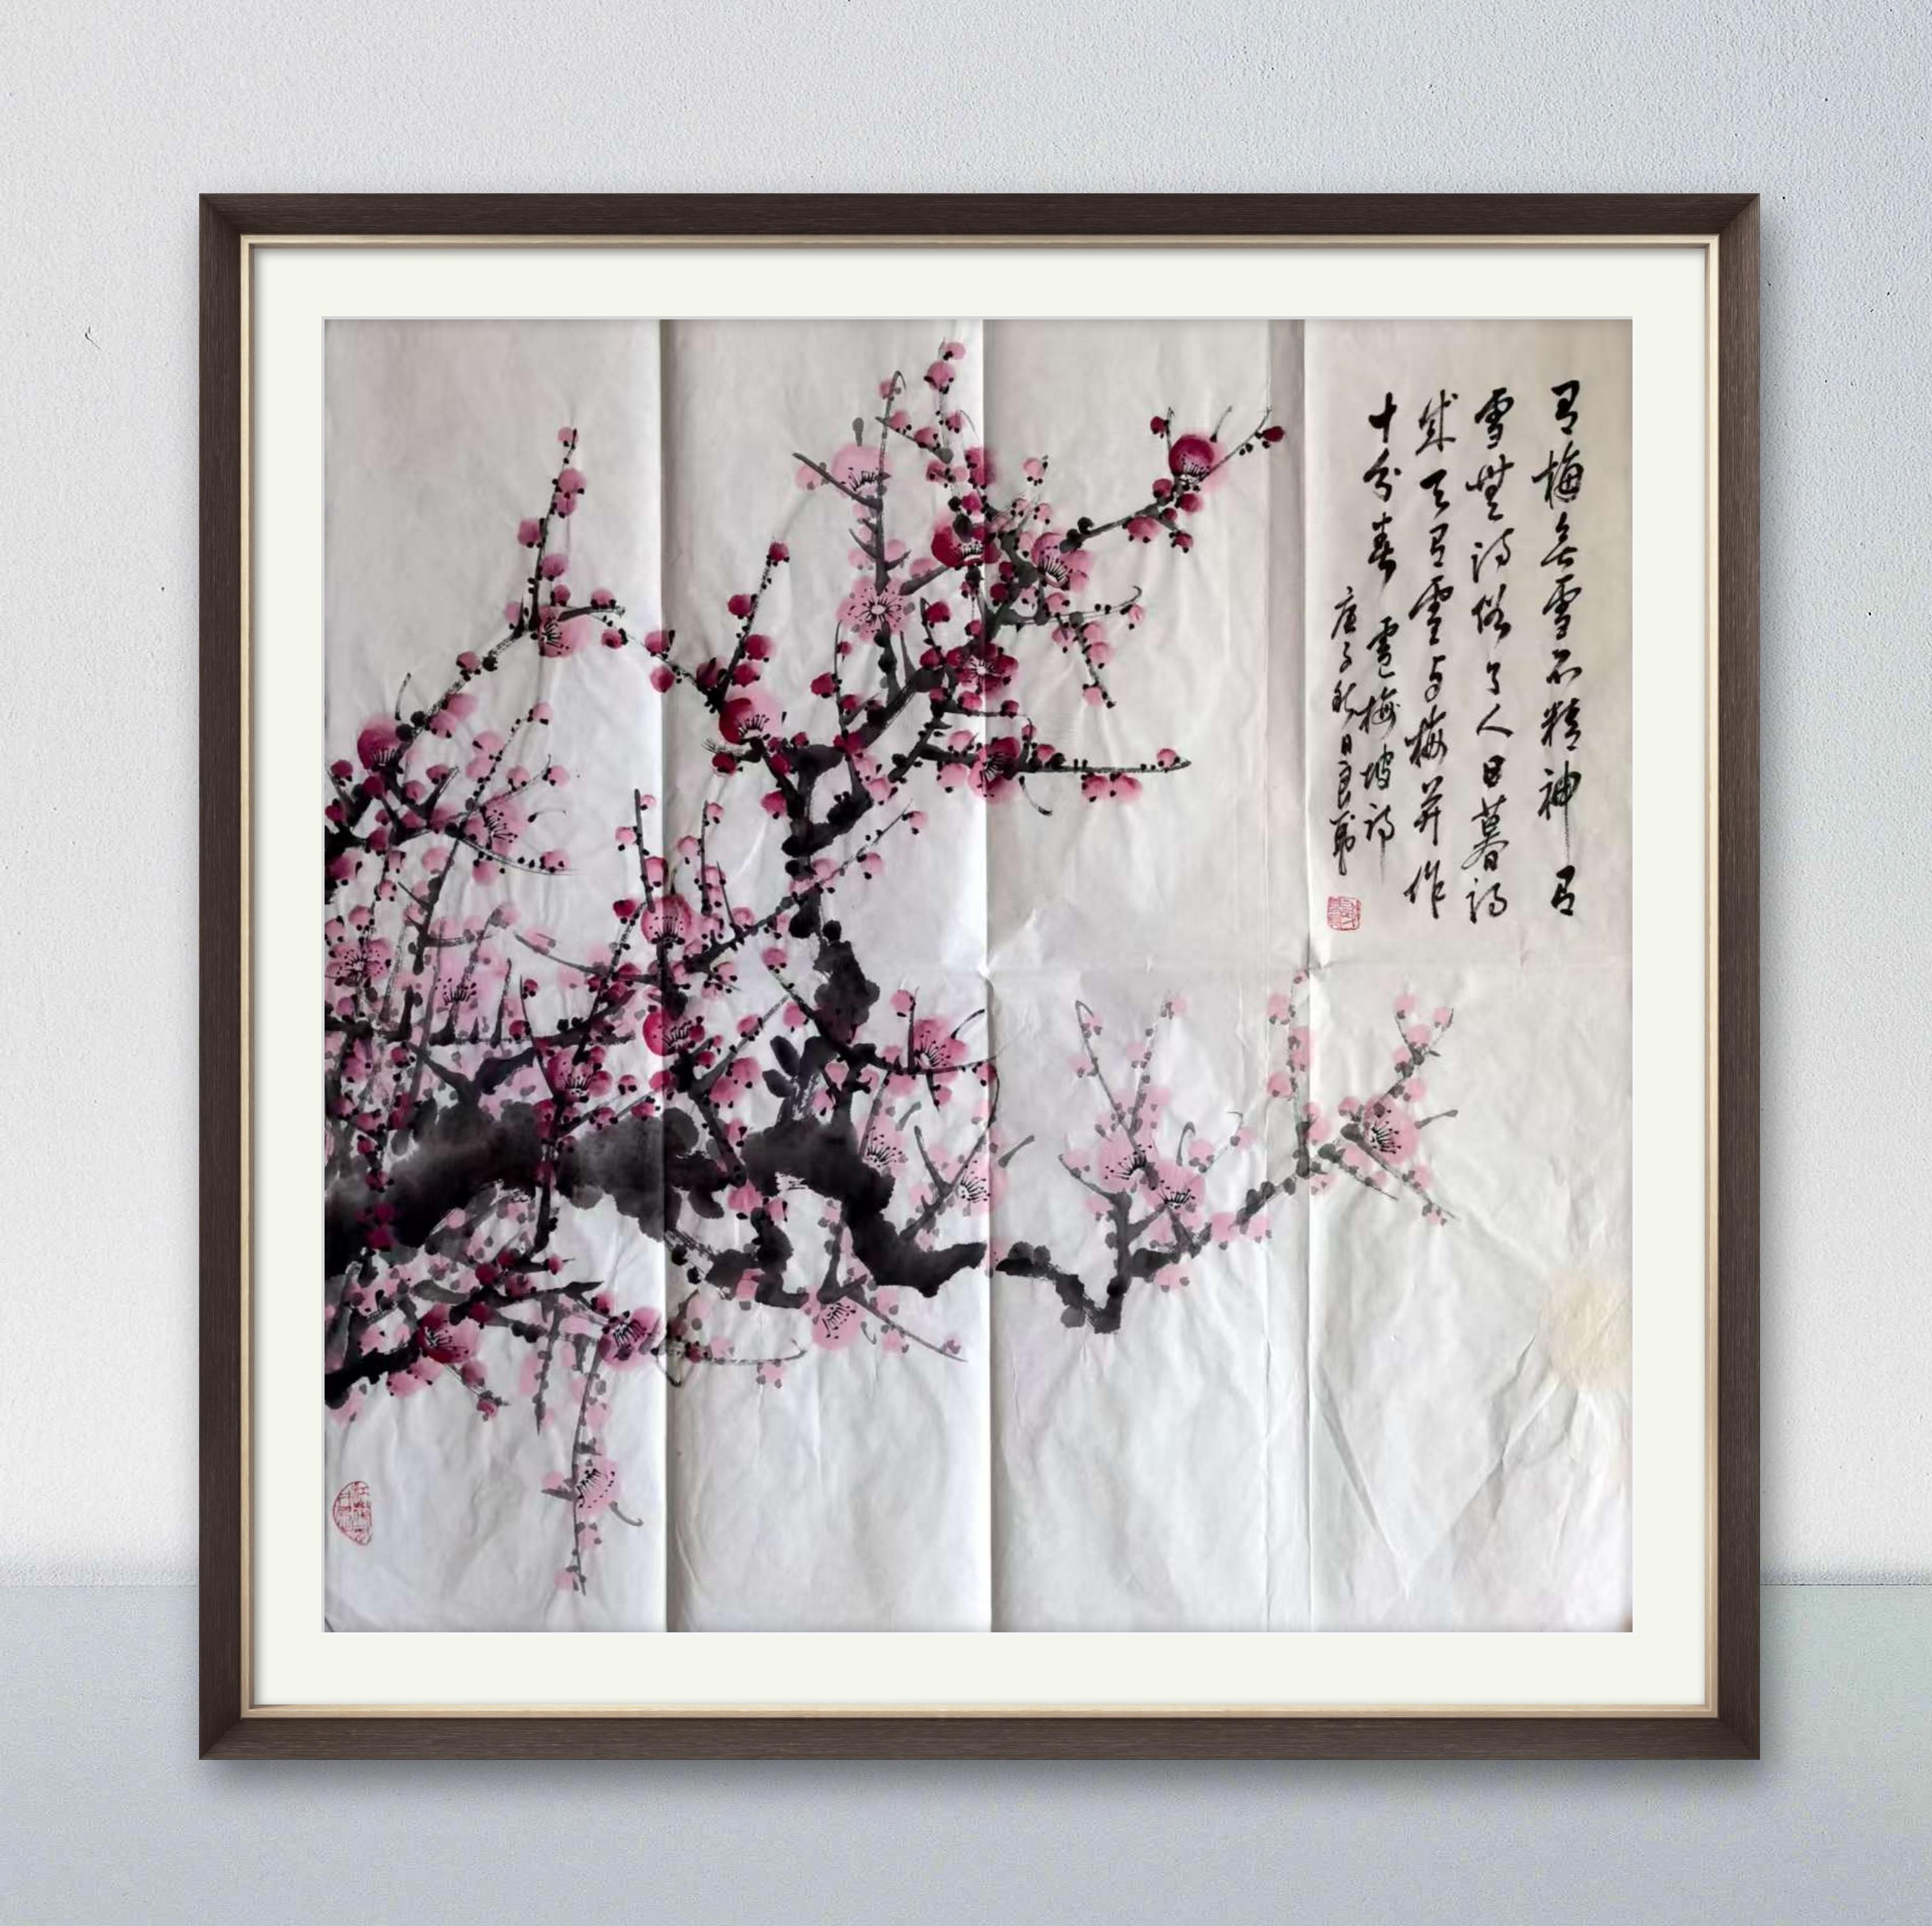 有梅无雪不精神有
雪無诗俗了人日暮诗
成天有雪与梅并作
十分春
盧梅坡诗
庚子秋日